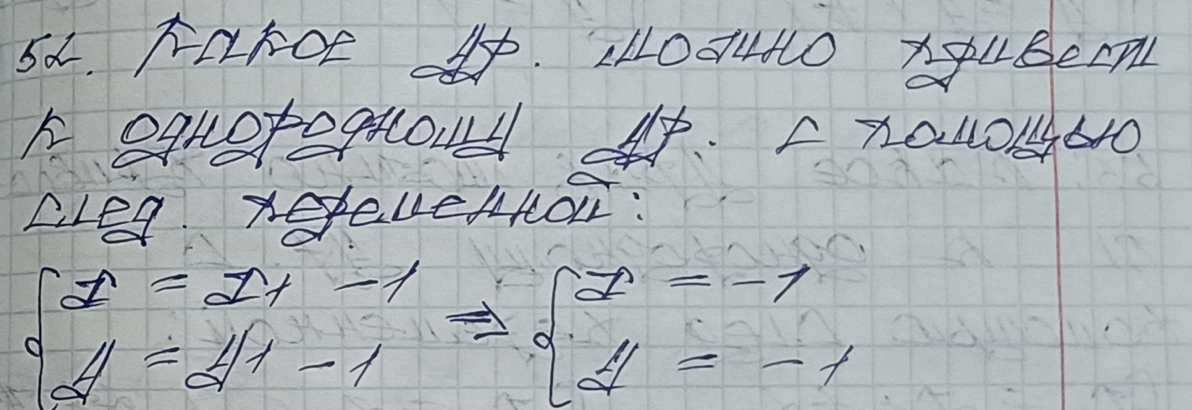 52. Какое ДУ. можно привести
к однородному ДУ. с помощью
след. переменной:
{ x = x1 - 1 ⇒ { x = -1
{ y = y1 - 1 { y = -1